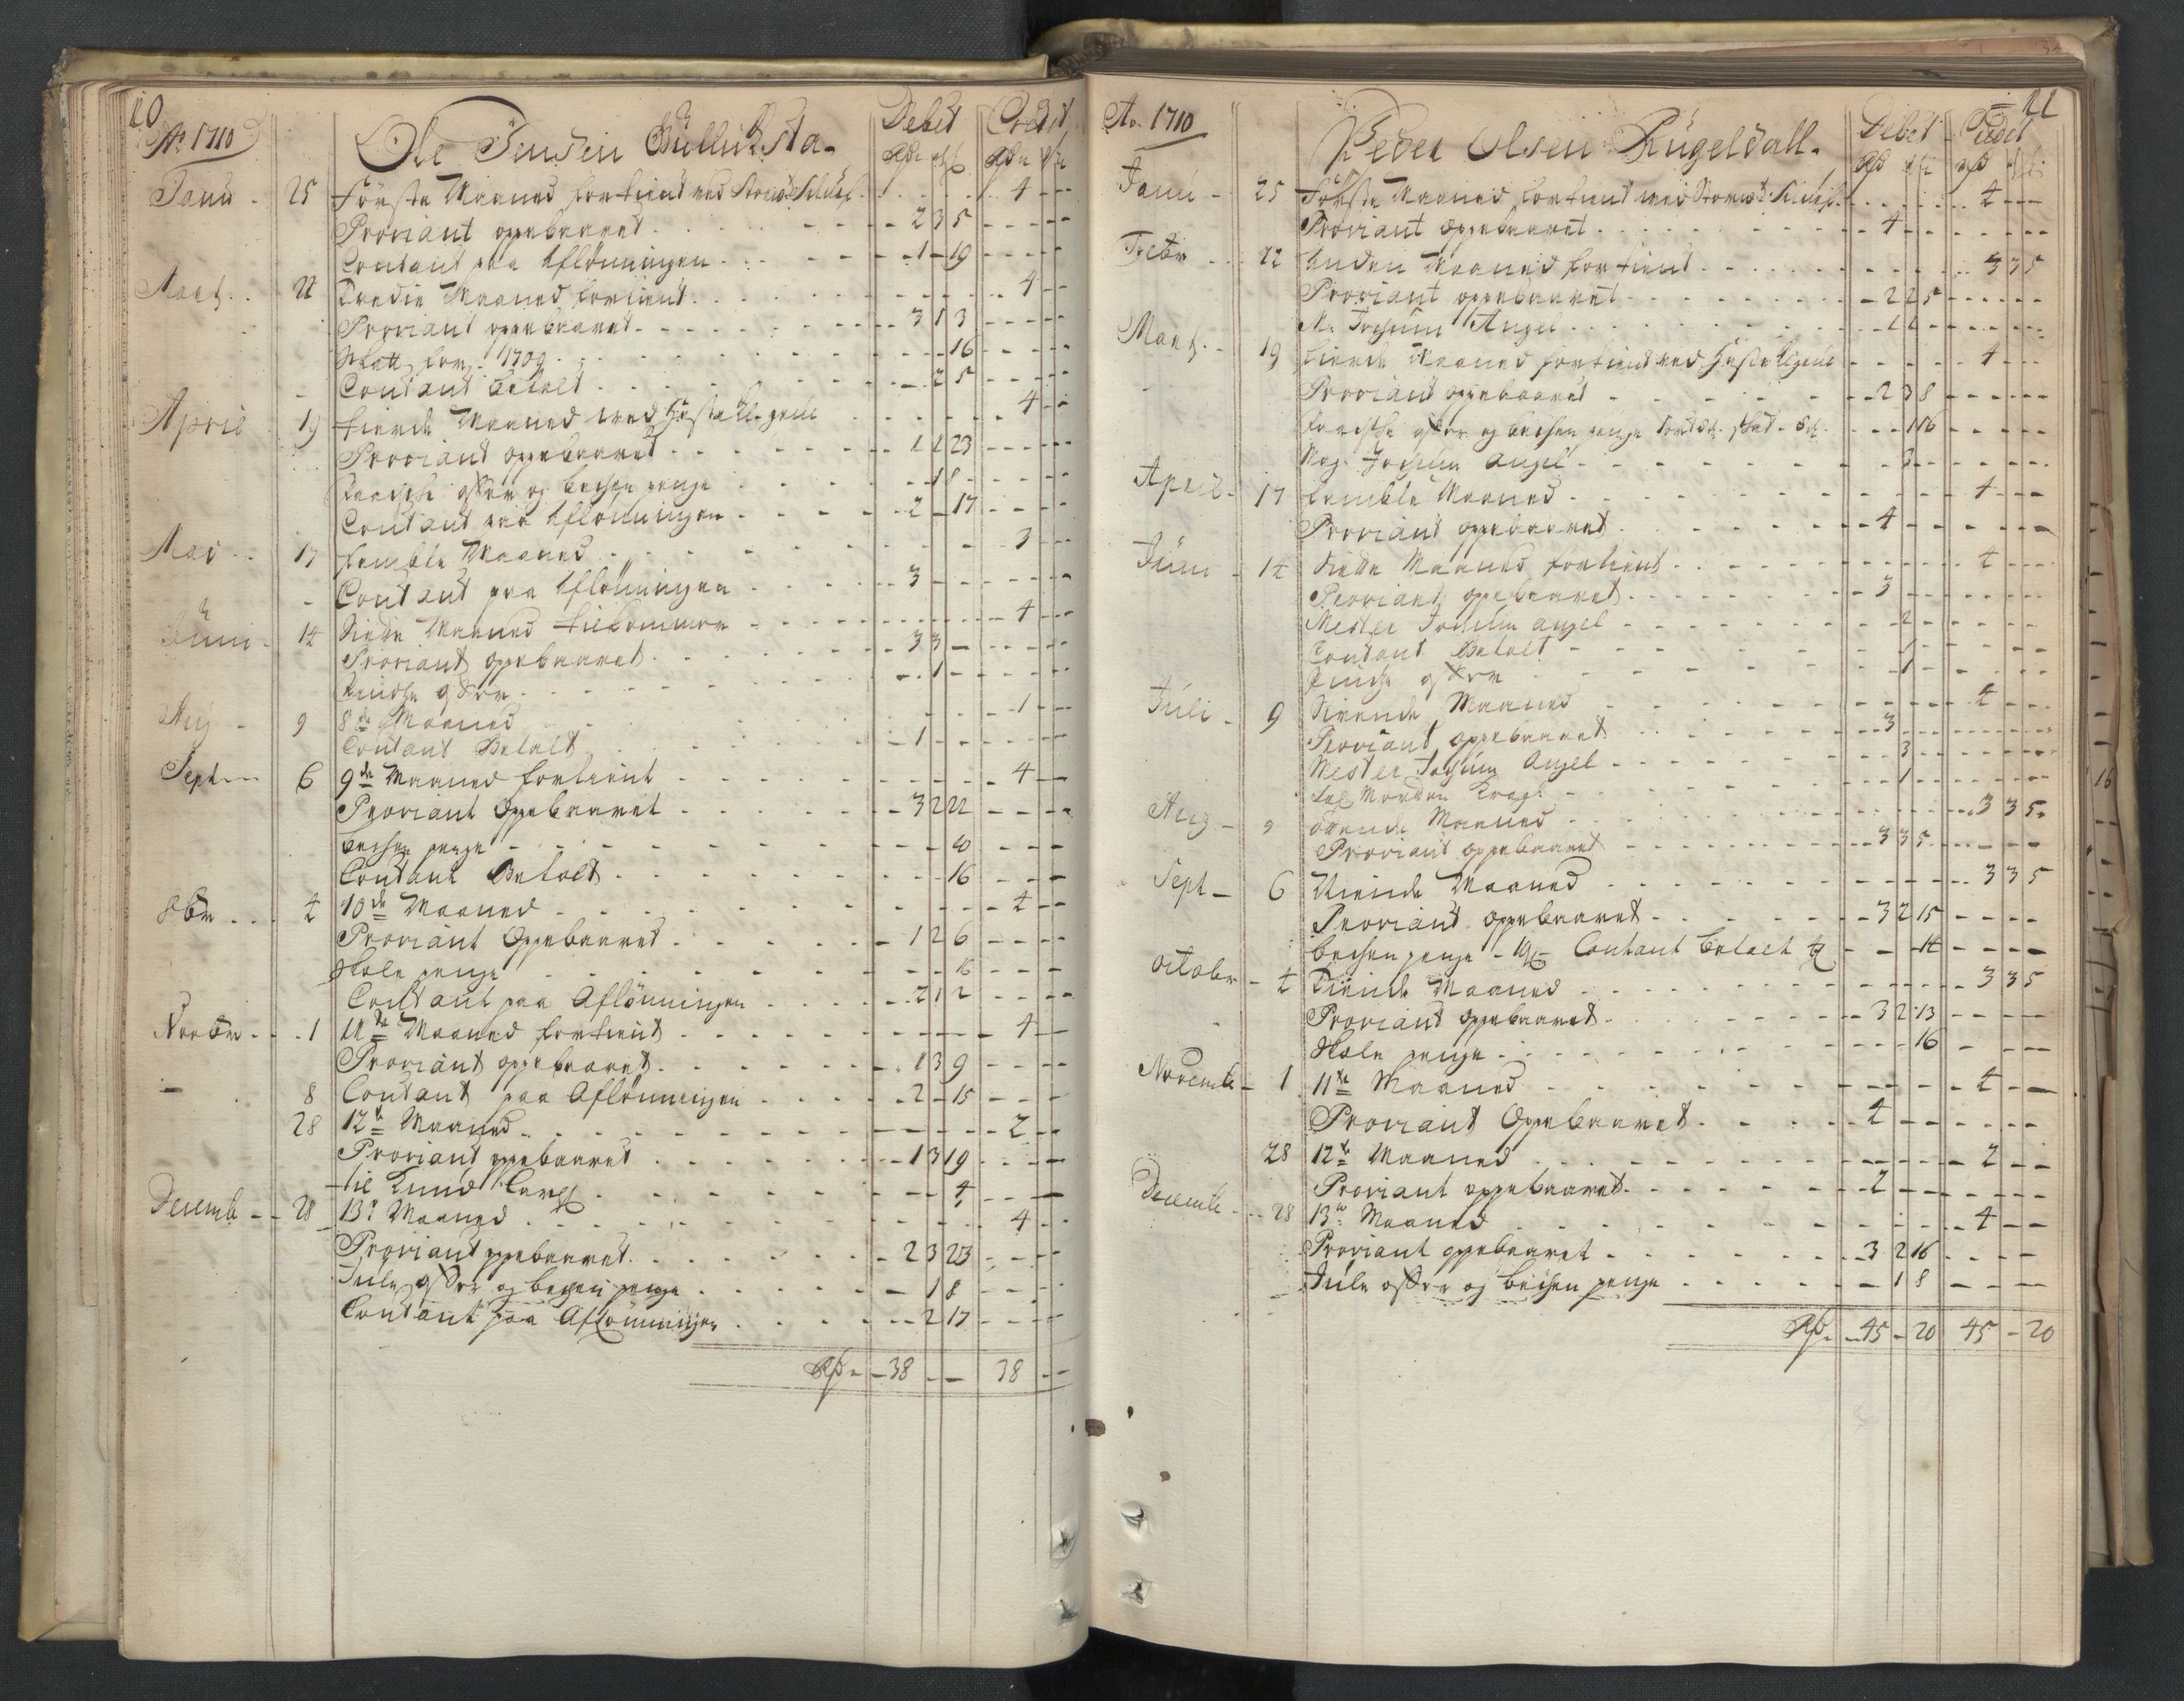 10
Ao 1710
Ole Jensen
Debet
Credit
Rdr
Janu - 25 Förste Maaned fortient ved - 4 - -
Proviant oppebaaret - 2 3 5
Contant paa Aflönningen - 1 - 19
Marts - 22 Tredie Maaned fortient - 4 - -
Proviant oppebaaret - 3 1 3
Skatt for 1709 - 16
Contant betalt - 2 5
April 19 fierde Maaned ved - 4 - -
Proviant oppebaaret - 1 1 23
Paasche offer og bechen penge - 1 8
Contant paa Aflönningen - 2 - 17
Mai - 17 femble Maaned - 3 - -
Contant paa Aflönningen - 3
Juni - 14 Siette Maaned tilkommer - 4 - -
Proviant oppebaaret - 3 3 -
Pindtze offer - 1 -
Aug - 9 8de Maaned - 1 - -
Contant Betalt - 1 -
Sept - 6 9de Maaned fortient - 4 - -
Proviant Oppebaaret - 3 2 22
bechen penge
Contant Betalt - 16
8br - 4 10de Maaned - 4 - -
Proviant Oppebaaret - 1 2 6
Skole penge - 16
Contant paa Aflönningen - 2 1 2
Novbr - 1 11te Maaned fortient - 4 - -
Proviant oppebaaret - 1 3 9
8 Contant paa Aflönningen - 2 - 15
28 12te Maaned - 2 - -
Proviant oppebaaret - 1 3 19
til Knud - 4
Decemb - 28 13de Maaned - 4 - -
Proviant oppebaaret - 2 3 23
Jule offer og bechen penge - 1 8
Contant paa Aflönningen - 2 17
Rdr - 38 - - 38 - -
11
Ao 1710
Peder Olsen Rügeldall
Debet
Credit
Janu - 25 Förste Maaned fortient ved - 4 - -
Proviant oppebaaret - 4 - -
Febr - 22 Anden Maaned fortient - 3 3 5
Proviant oppebaaret - 2 2 5
Mr Jochum Angel
Marts - 19 fierde Maaned fortient ved - 4 - -
Proviant oppebaaret - 2 3 8
Paasche offer og bechen penge
Mag. Jochum Angel - 3
April - 17 femble Maaned - 4 - -
Proviant oppebaaret - 4 - -
Juni - 14 Siette Maaned fortient - 4 - -
Proviant oppebaaret - 3 - -
Mester Jochum Angel - 2 -
Contant Betalt - 1 -
Pindtze offer - 1 -
Juli - 9 Sivende Maaned - 4 - -
Proviant oppebaaret - 3 - -
Mester Jochum Angel - 3 -
Morten - 1 -
Aug - 9 ottende Maaned - 3 3 5
Proviant oppebaaret - 3 3 5
Sept - 6 Niende Maaned - 3 3 5
Proviant oppebaaret - 3 2 15
bechen penge - Contant betalt - 14
Octobr - 4 Tiende Maaned - 3 3 5
Proviant oppebaaret - 3 2 13
Skole penge - 16
Novemb - 1 11te Maaned - 4 - -
Proviant Oppebaaret - 4 - -
28 12te Maaned - 2 - -
Proviant oppebaaret - 2 - -
Decemb - 28 13de Maaned - 4 - -
Proviant oppebaaret - 3 2 16
Jule offer og bechen penge - 1 8
Rdr - 45 - 20 45 - 20
16